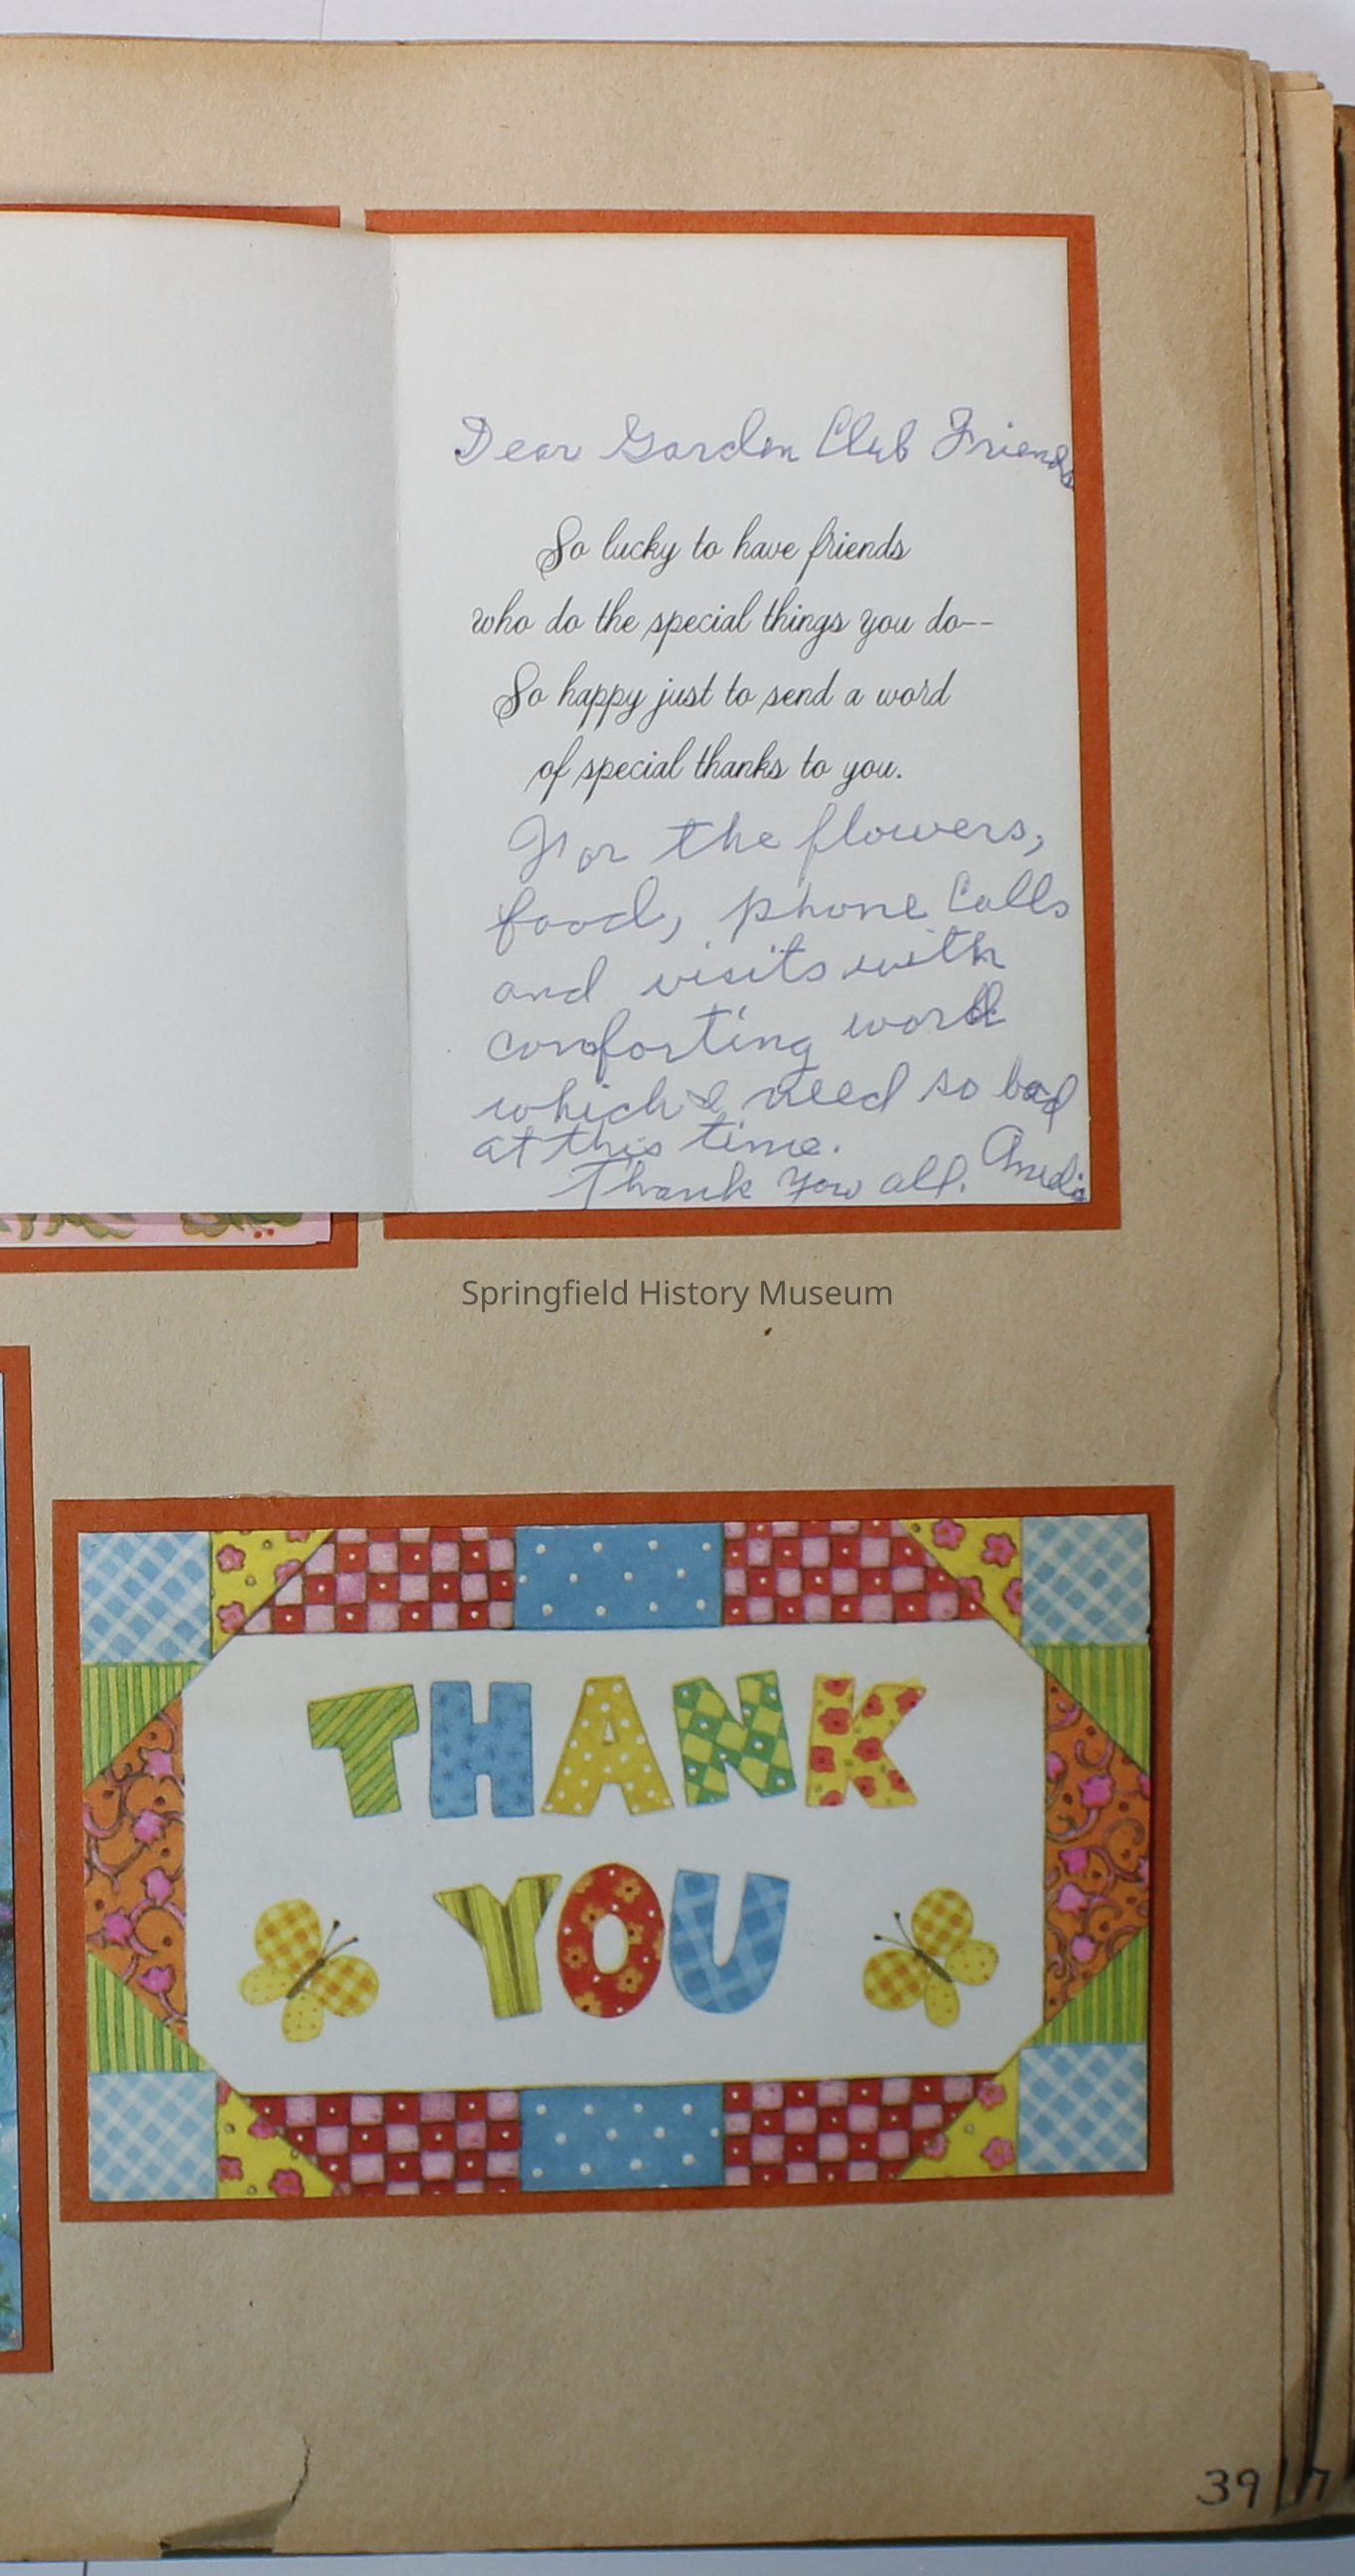 Dear Garden Club Friends
So lucky to have friends
who do the special things you do--
So happy just to send a word
of special thanks to you.
For the flowers,
food, phone Calls
and visits with
comforting word
which I need so bad
at this time.
Thank You all.
Springfield History Museum
THANK
YOU
39